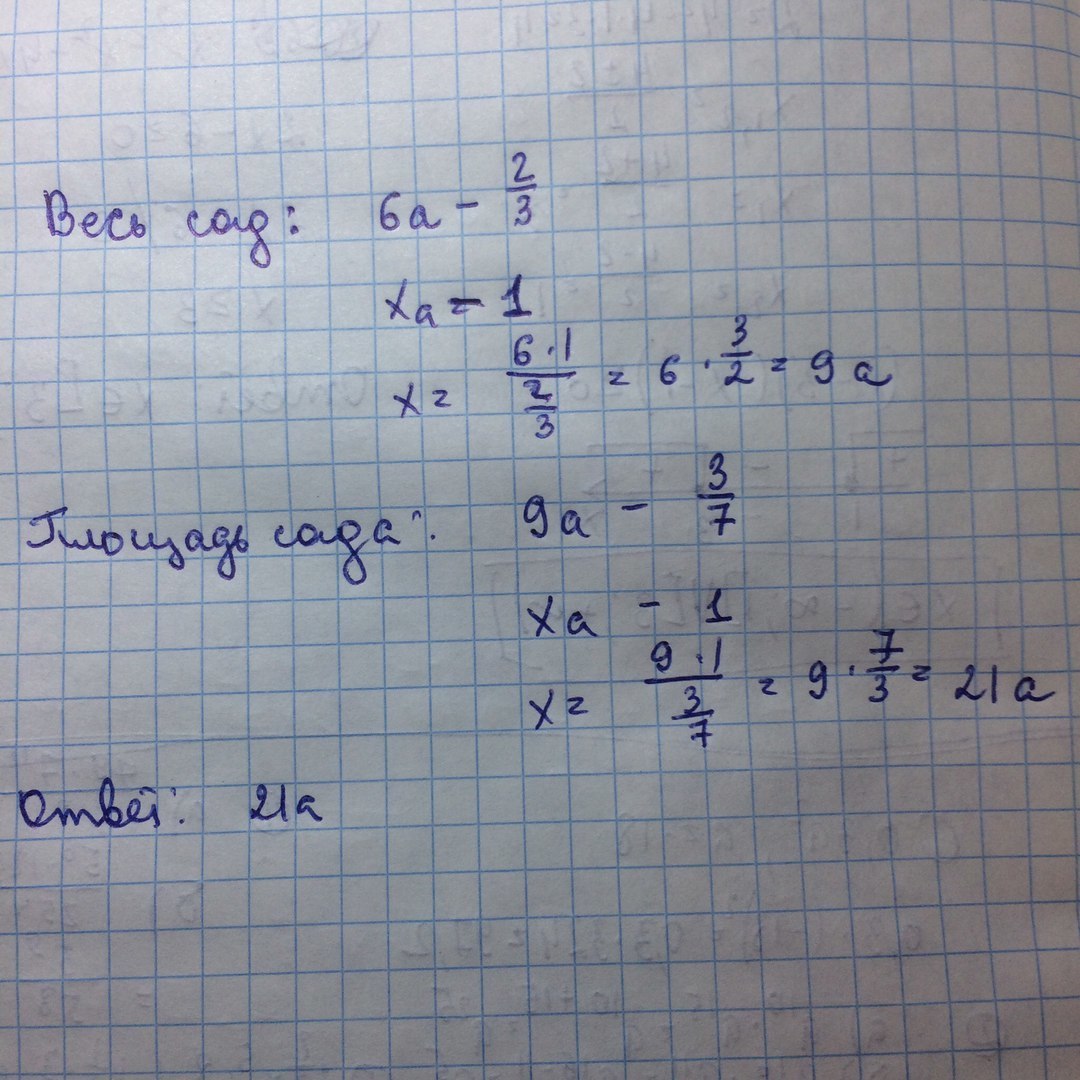 Весь сад: 6а - 2/3
xа - 1
x = (6·1)/(2/3) = 6 · 3/2 = 9 а
Площадь сада: 9а - 3/7
xа - 1
x = (9·1)/(3/7) = 9 · 7/3 = 21а
Ответ: 21а